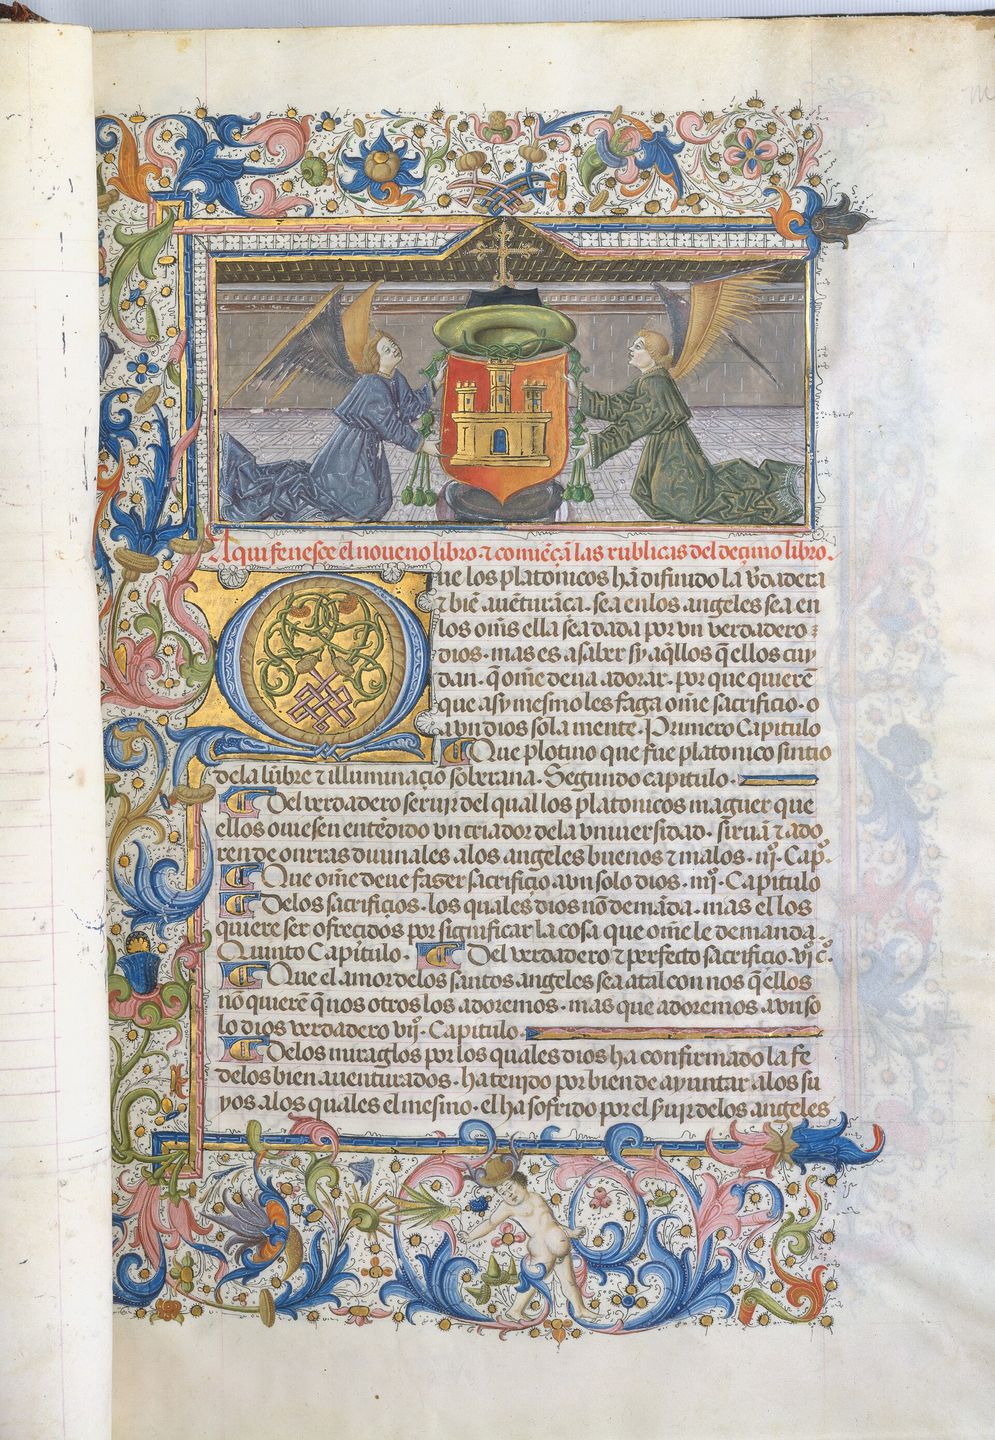 Aqui fenesce el noueno libro ⁊ comiẽçã las rublicas del deçimo libro.
Que los platonicos hã difinido la v̾dadera
⁊ biẽ auẽturãça. sea en los angeles sea en
los om̃s ella sea dada por vn verdadero
dios. mas es a saber sy aq̃llos q̃ ellos cuy
dan. q̃ om̃e deua adorar. por que quierẽ
que asy mesmo les faga om̃e sacrificio. o
a vn dios sola mente. Primero Capitulo
Que plotino que fue platonico sintio
de la lũbre ⁊ illuminaçiõ soberana. Segundo capitulo.
Del verdadero seruir del qual los platonicos maguer que
ellos ouiesen entẽdido vn criador de la vniuersidad. siruã ⁊ ado
ren de onrras diuinales a los angeles buenos ⁊ malos. iijº. Capº.
Que om̃e deue fazer sacrifiçio a vn solo dios. iiijº. Capitulo
De los sacrifiçios. los quales dios nõ demãda. mas el los
quiere ser ofrecidos por significar la cosa que om̃e le demanda.
Quinto Capitulo. Del verdadero ⁊ perfecto sacrifiçio. vjº cº.
Que el amor de los santos angeles sea atal con nos q̃ ellos
nõ quierẽ q̃ nos otros los adoremos. mas que adoremos a vn so
lo dios verdadero vijº. Capitulo.
De los miraglos por los quales dios ha confirmado la fe
de los bien auenturados. ha tenido por bien de ayuntar a los su
yos. a los quales el mesmo. el ha sofrido por el s̃uir de los angeles